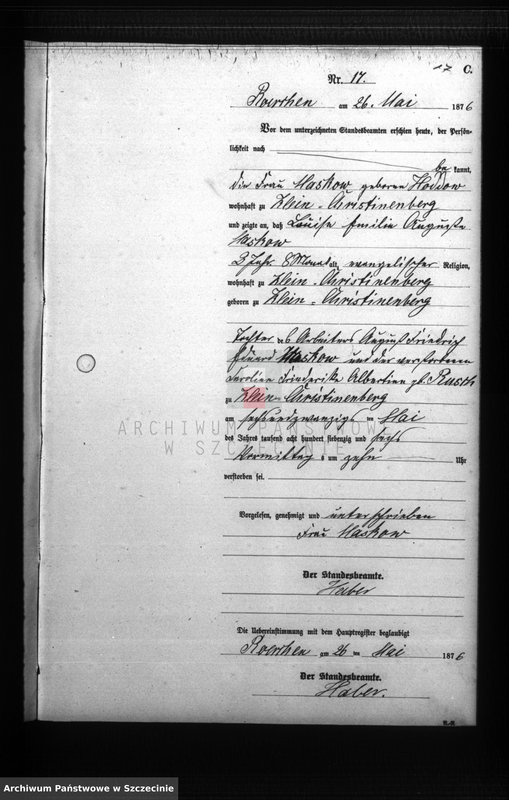 17 C.
Nr. 17.
Roerchen am 26. Mai 1876
Vor dem unterzeichneten Standesbeamten erschien heute, der Persön-
lichkeit nach
be kannt,
die Frau Maskow geboren Hoddow
wohnhaft zu Klein-Christinenberg
und zeigte an, daß Louise Emilie Auguste
Maskow
3 Jahr 8 Monat alt, evangelischer Religion,
wohnhaft zu Klein-Christinenberg
geboren zu Klein-Christinenberg
Tochter des Arbeiters August Friedrich
Eduard Maskow und der verstorbenen
Caroline Friederike Albertine geb.
zu Klein-Christinenberg
am sechsundzwanzigsten Mai
des Jahres tausend acht hundert siebenzig und sechs
Vormittags um zehn Uhr
verstorben sei.
Vorgelesen, genehmigt und unterschrieben
Frau Maskow
Der Standesbeamte.
Haber
Die Uebereinstimmung mit dem Hauptregister beglaubigt
Roerchen am 26 ten Mai 1876
Der Standesbeamte.
Haber.
ARCHIWUM PAŃSTWOWE
W SZCZECINIE
Archiwum Państwowe w Szczecinie